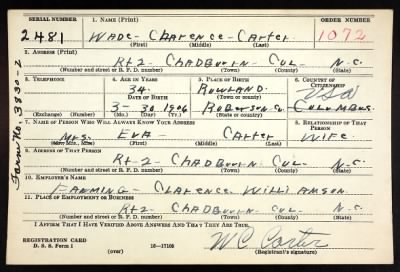 SERIAL NUMBER 1. NAME (Print) ORDER NUMBER
2481 WADE - CLARENCE - CARTER 1072
(First) (Middle) (Last)
2. ADDRESS (Print)
Rt2 - CHADBOURN - COL - N.C.
(Number and street or R. F. D. number) (Town) (County) (State)
3. TELEPHONE 4. AGE IN YEARS 5. PLACE OF BIRTH 6. COUNTRY OF CITIZENSHIP
34 ROWLAND USA
DATE OF BIRTH (Town or county)
3-30 1906 ROBESON Co COLUMBUS
(Exchange) (Number) (Mo.) (Day) (Yr.) (State or country)
7. NAME OF PERSON WHO WILL ALWAYS KNOW YOUR ADDRESS 8. RELATIONSHIP OF THAT PERSON
Mrs. EVA - CARTER WIFE
(Mr., Mrs., Miss) (First) (Middle) (Last)
9. ADDRESS OF THAT PERSON
Rt-2 - CHADBOURN COL - N.C.
(Number and street or R. F. D. number) (Town) (County) (State)
10. EMPLOYER'S NAME
FARMING - CLARENCE WILLIAMSON
11. PLACE OF EMPLOYMENT OR BUSINESS
Rt2 - CHADBOURN COL - N.C.
(Number and street or R. F. D. number) (Town) (County) (State)
I AFFIRM THAT I HAVE VERIFIED ABOVE ANSWERS AND THAT THEY ARE TRUE.
REGISTRATION CARD
D. S. S. Form 1 (over) 16-17105 W C Carter
(Registrant's signature)
Form No. 3830-2